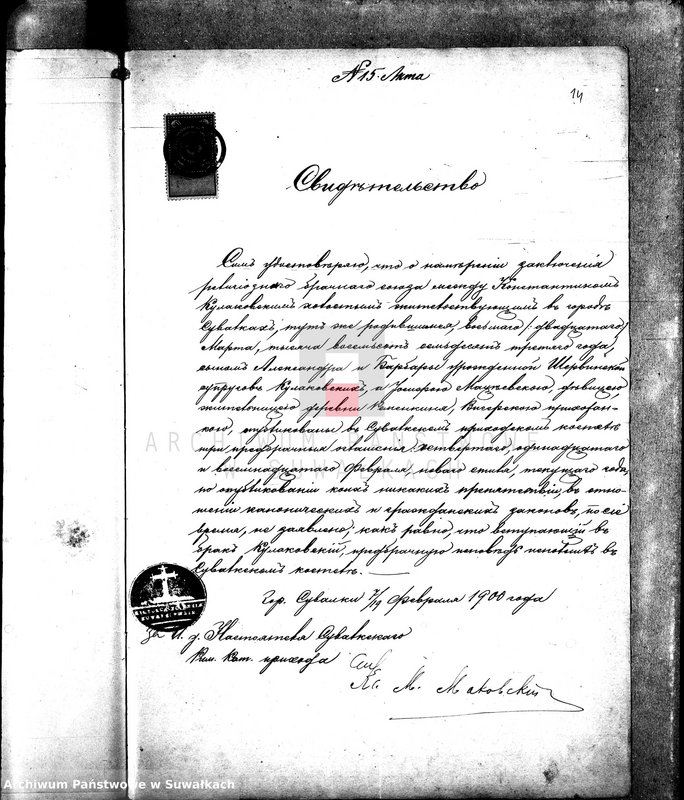 № 15 Акта
14
Свидѣтельство
Симъ удостовѣряю, что о намѣреніи заключенія
религіознаго брачнаго союза между Константиномъ
Кулаковскимъ холостымъ жительствующимъ въ городѣ
Сувалкахъ, тутъ же родившимся, восьмаго /двадцатаго/
Марта, тысяча восемьсотъ семьдесятъ третьяго года,
сыномъ Александра и Барбары урожденной
супруговъ Кулаковскихъ, и Іозефою Мацкевскою, дѣвицею
жительницею деревни приходан-
кою, опубликованы въ Сувалкскомъ приходскомъ костелѣ
три предбрачныя оглашенія, четвертаго, одинадцатаго
и восемнадцатаго Февраля, новаго стиля, текущаго года,
по опубликованіи коихъ никакихъ препятствій, въ отно-
шеніи каноническихъ и гражданскихъ законовъ, по сіе
время, не заявлено; какъ равно, что вступающій въ
бракъ Кулаковскій, предбрачную исповѣдь исполнилъ въ
Сувалкскомъ костелѣ. —
Гор. Сувалки 7/19 Февраля 1900 года
За И. д. Настоятеля Сувалкскаго
Рим. Кат. прихода
Кс. М. Маковскій
ARCHIWUM PAŃSTWOWE
W SUWAŁKACH
Archiwum Państwowe w Suwałkach